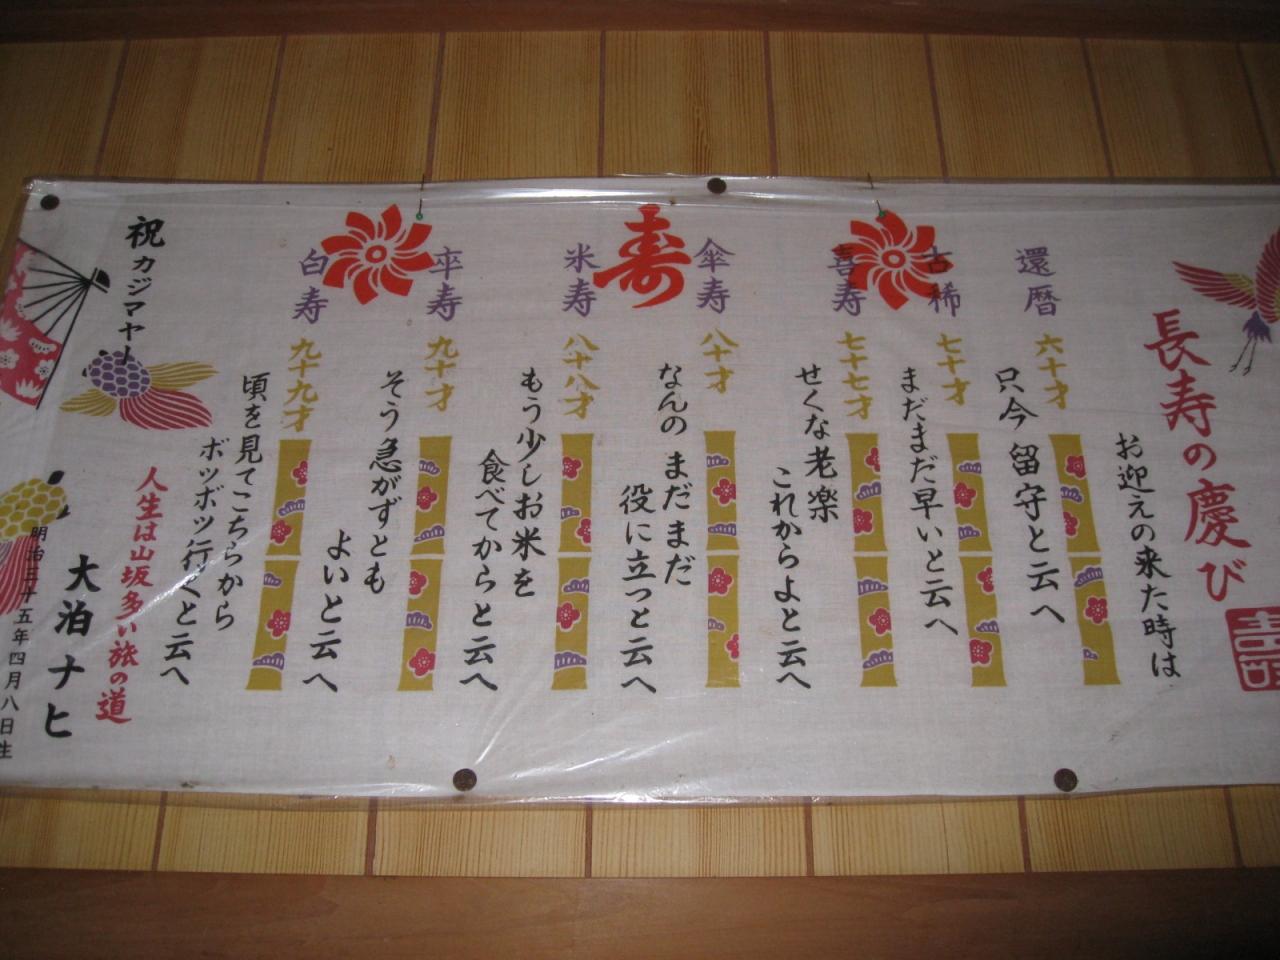 長寿の慶び
お迎えの来た時は
還暦 六十才
只今 留守と云へ
古稀 七十才
まだまだ早いと云へ
喜寿 七十七才
せくな老楽
これからよと云へ
寿
傘寿 八十才
なんの まだまだ
役に立つと云へ
米寿 八十八才
もう少しお米を
食べてからと云へ
卒寿 九十才
そう急がずとも
よいと云へ
白寿 九十九才
頃を見てこちらから
ボツボツ行くと云へ
祝 カジマヤー
人生は山坂多い旅の道
大泊ナヒ
明治三十五年四月八日生